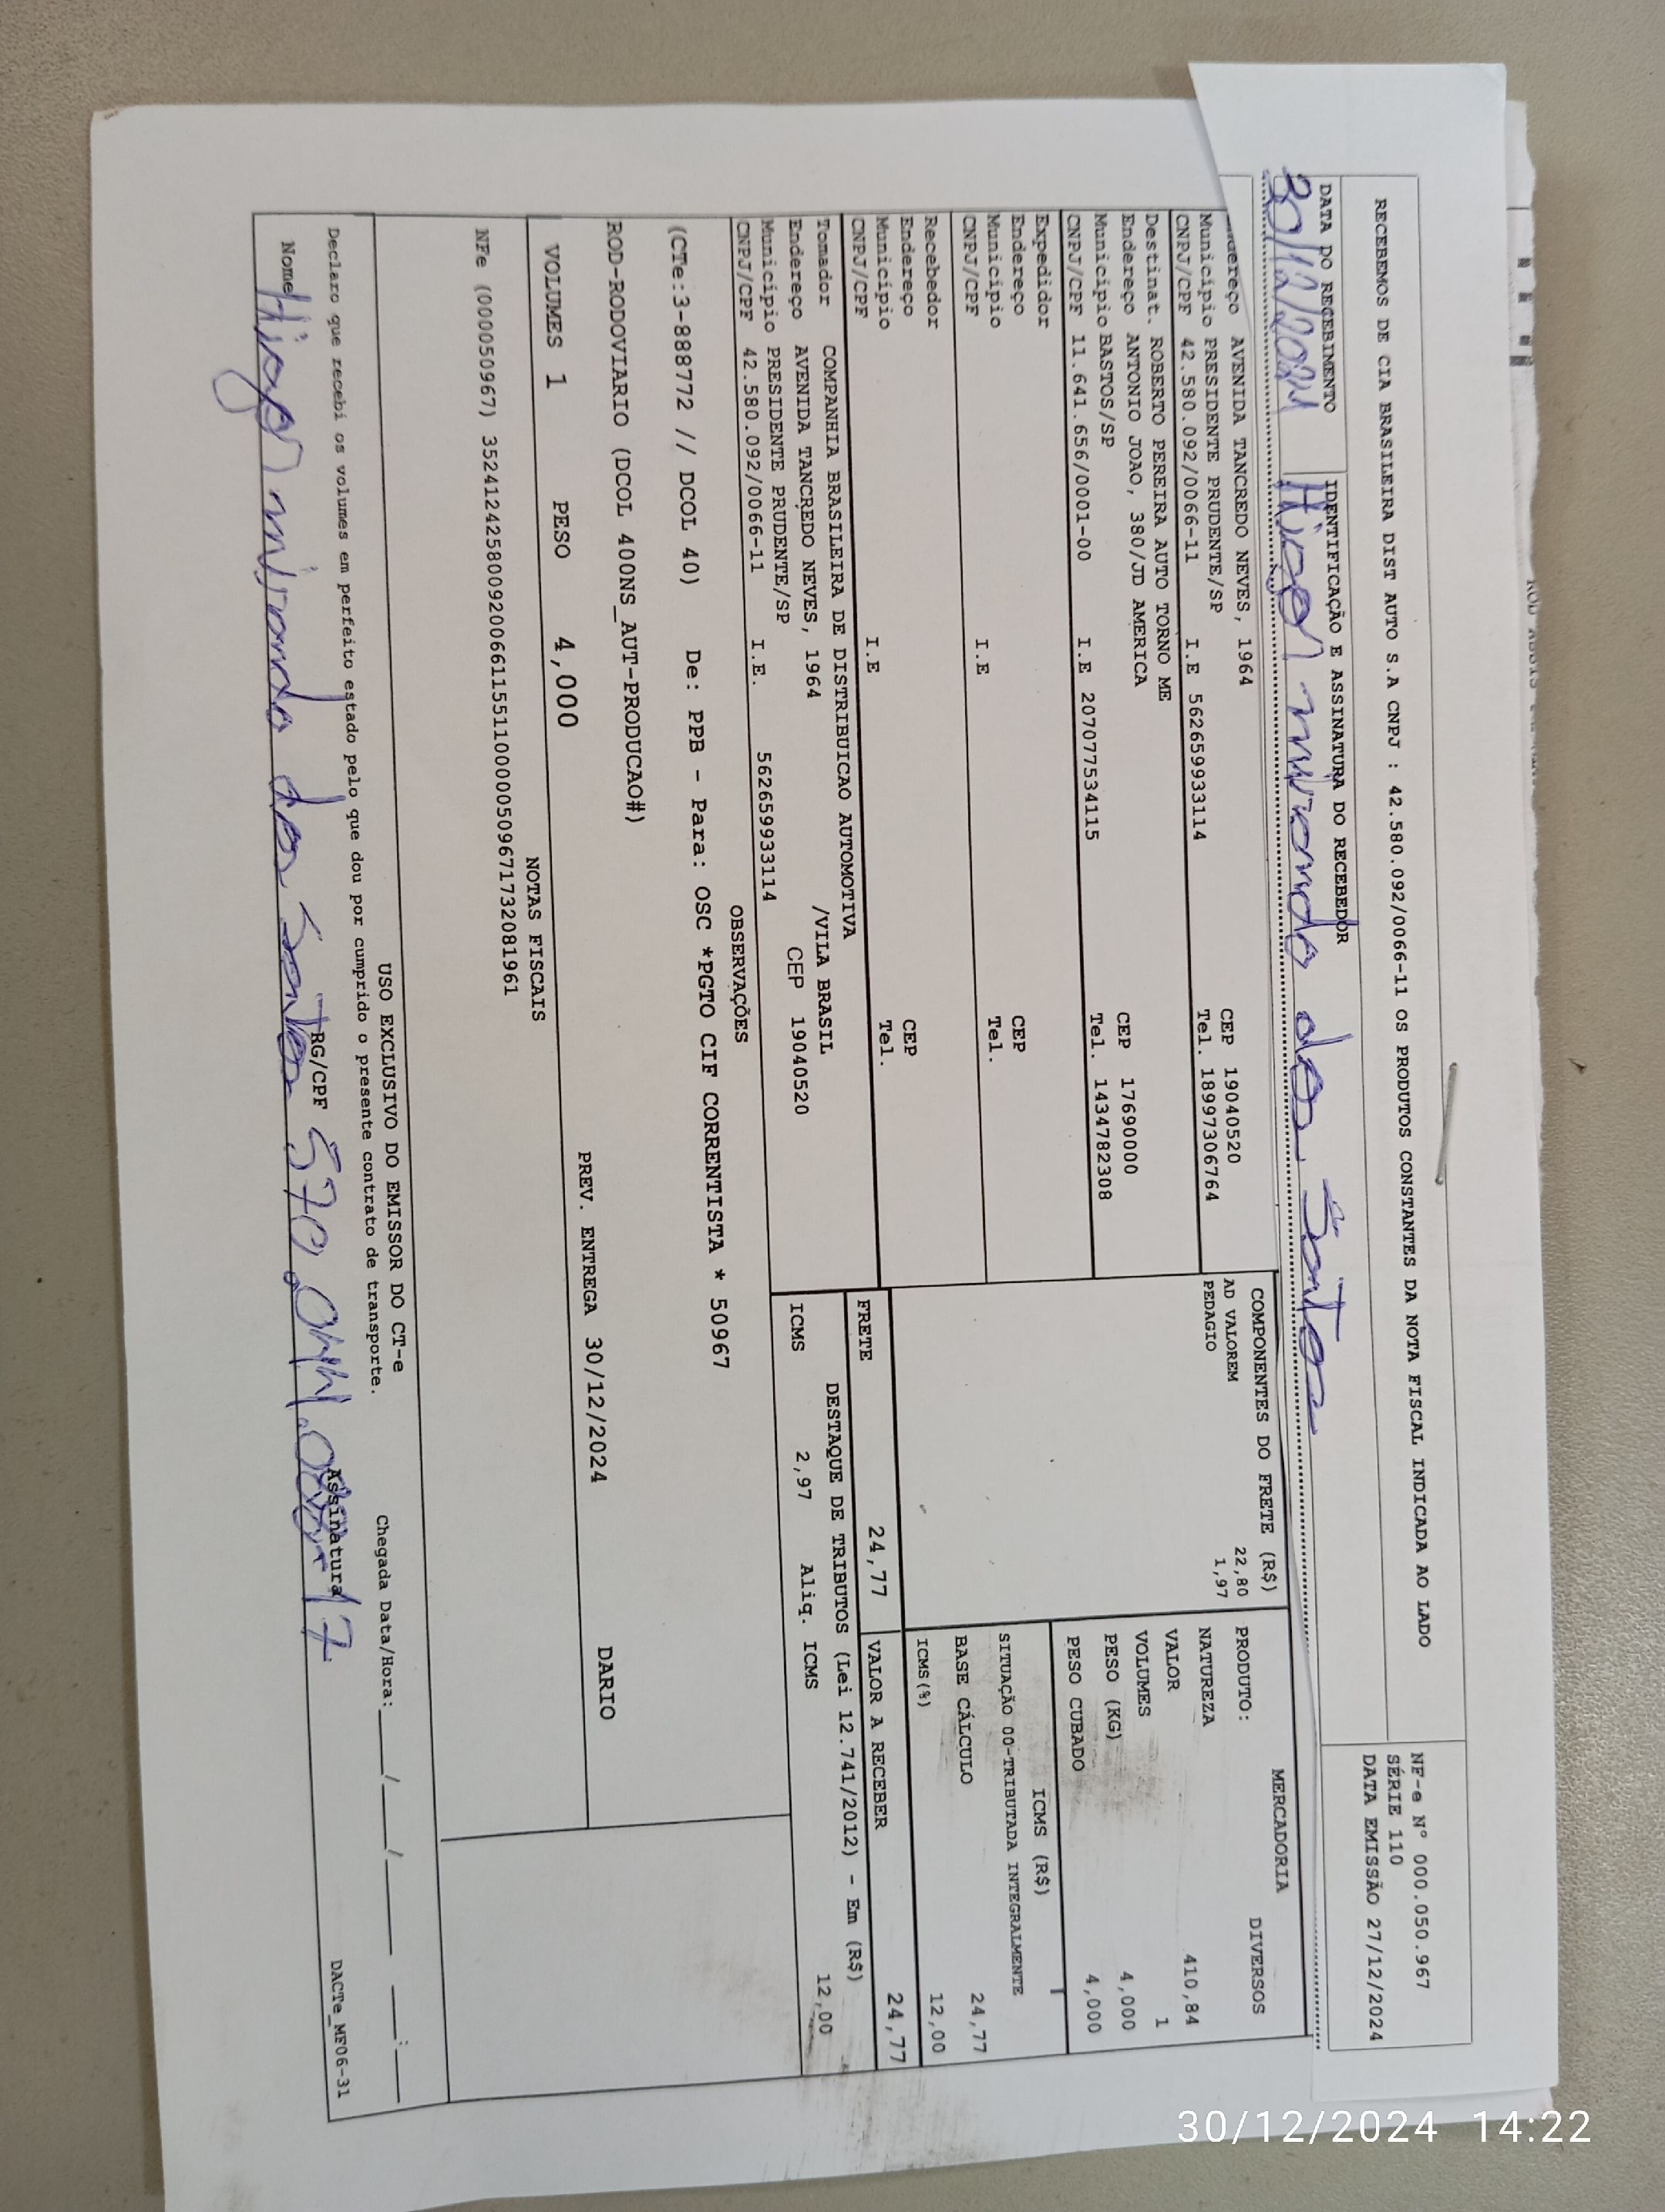 RECEBEMOS DE CIA BRASILEIRA DIST AUTO S.A CNPJ : 42.580.092/0066-11 OS PRODUTOS CONSTANTES DA NOTA FISCAL INDICADA AO LADO
NF-e N° 000.050.967
SÉRIE 110
DATA EMISSÃO 27/12/2024
DATA DO RECEBIMENTO IDENTIFICAÇÃO E ASSINATURA DO RECEBEDOR
30/12/2024 Hiago miranda dos Santos
AVENIDA TANCREDO NEVES, 1964 CEP 19040520
Município PRESIDENTE PRUDENTE/SP Tel. 18997306764
CNPJ/CPF 42.580.092/0066-11 I.E 562659933114
Destinat. ROBERTO PEREIRA AUTO TORNO ME
Endereço ANTONIO JOAO, 380/JD AMERICA CEP 17690000
Município BASTOS/SP Tel. 1434782308
CNPJ/CPF 11.641.656/0001-00 I.E 207077534115
Expedidor
Endereço CEP
Município Tel.
CNPJ/CPF I.E
Recebedor
Endereço CEP
Município Tel.
CNPJ/CPF I.E
Tomador COMPANHIA BRASILEIRA DE DISTRIBUICAO AUTOMOTIVA
Endereço AVENIDA TANCREDO NEVES, 1964 /VILA BRASIL
Município PRESIDENTE PRUDENTE/SP CEP 19040520
CNPJ/CPF 42.580.092/0066-11 I.E. 562659933114
COMPONENTES DO FRETE (R$)
AD VALOREM 22,80
PEDAGIO 1,97
MERCADORIA
PRODUTO: DIVERSOS
NATUREZA
VALOR 410,84
VOLUMES 1
PESO (KG) 4,000
PESO CUBADO 4,000
ICMS (R$)
SITUAÇÃO 00-TRIBUTADA INTEGRALMENTE
BASE CÁLCULO 24,77
ICMS(%) 12,00
FRETE 24,77 VALOR A RECEBER 24,77
DESTAQUE DE TRIBUTOS (Lei 12.741/2012) - Em (R$)
ICMS 2,97 Aliq. ICMS 12,00
OBSERVAÇÕES
(CTe:3-888772 // DCOL 40) De: PPB - Para: OSC *PGTO CIF CORRENTISTA * 50967
ROD-RODOVIARIO (DCOL 400NS_AUT-PRODUCAO#)
VOLUMES 1 PESO 4,000 PREV. ENTREGA 30/12/2024 DARIO
NOTAS FISCAIS
NFe (000050967) 35241242580092006611551100000509671732081961
USO EXCLUSIVO DO EMISSOR DO CT-e
Declaro que recebi os volumes em perfeito estado pelo que dou por cumprido o presente contrato de transporte. Chegada Data/Hora: ___/___/_____ ___:___
Nome Hiago miranda dos Santos RG/CPF Assinatura
DACTe_MF06-31
30/12/2024 14:22